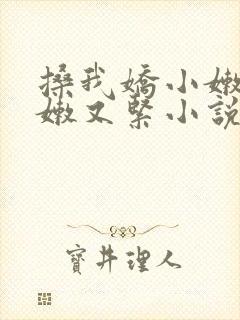 搡我嬌小嫩
嫩又緊小說
寶井理人